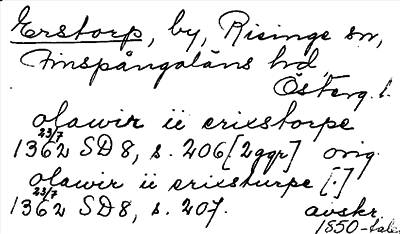 Erstorp, by, Risinge sn,
Finspångaläns hd,
Österg. l.
olawir ii erixstorpe
23/7
1362 SD 8, s. 206 [2ggr] orig.
olawir ii erixsturpe [.]
23/7
1362 SD 8, s. 207. avskr.
1850-tale